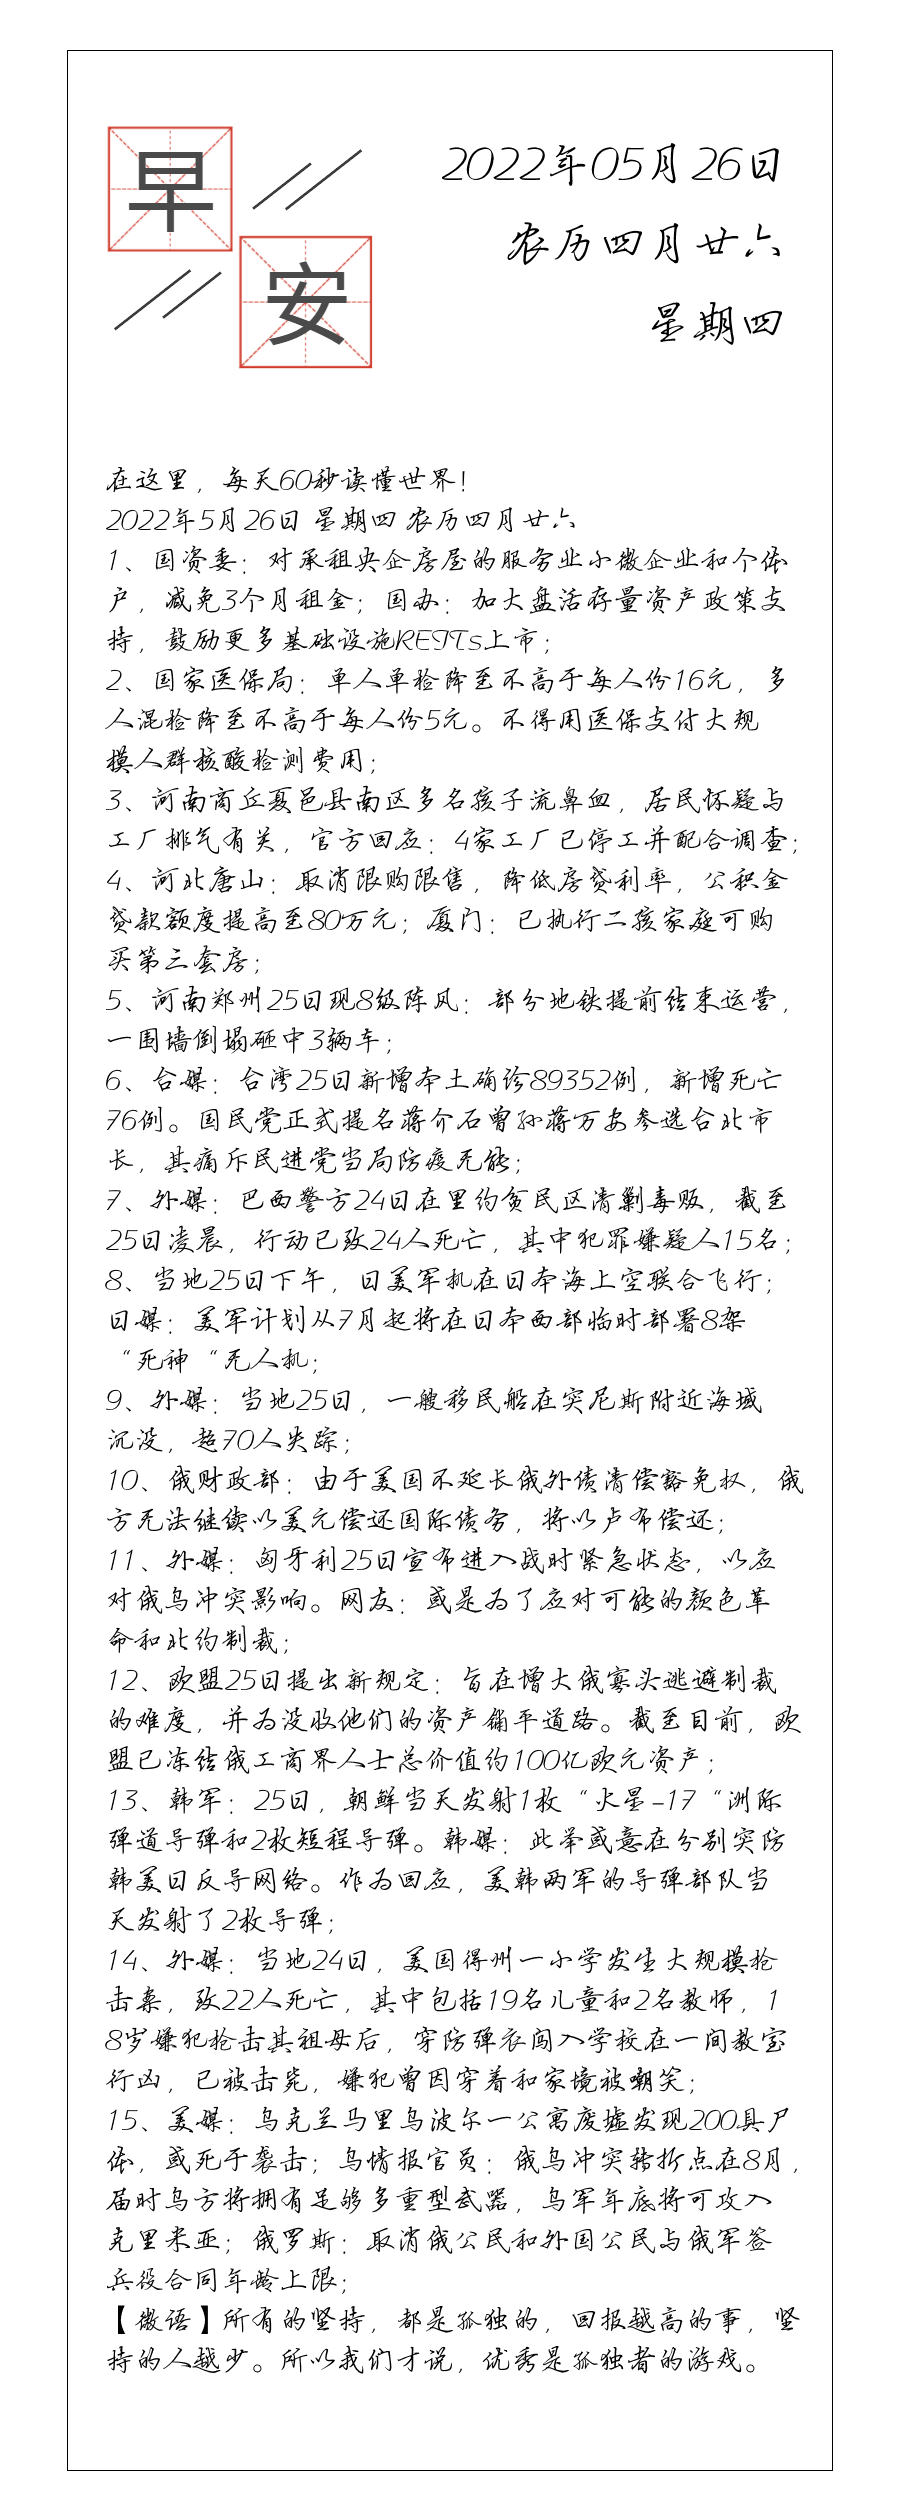 早
安
2022年05月26日
农历四月廿六
星期四
在这里，每天60秒读懂世界！
2022年5月26日 星期四 农历四月廿六
1、国资委：对承租央企房屋的服务业小微企业和个体
户，减免3个月租金；国办：加大盘活存量资产政策支
持，鼓励更多基础设施REITs上市；
2、国家医保局：单人单检降至不高于每人份16元，多
人混检降至不高于每人份5元。不得用医保支付大规
模人群核酸检测费用；
3、河南商丘夏邑县南区多名孩子流鼻血，居民怀疑与
工厂排气有关，官方回应：4家工厂已停工并配合调查；
4、河北唐山：取消限购限售，降低房贷利率，公积金
贷款额度提高至80万元；厦门：已执行二孩家庭可购
买第三套房；
5、河南郑州25日现8级阵风：部分地铁提前结束运营，
一围墙倒塌砸中3辆车；
6、台媒：台湾25日新增本土确诊89352例，新增死亡
76例。国民党正式提名蒋介石曾孙蒋万安参选台北市
长，其痛斥民进党当局防疫无能；
7、外媒：巴西警方24日在里约贫民区清剿毒贩，截至
25日凌晨，行动已致24人死亡，其中犯罪嫌疑人15名；
8、当地25日下午，日美军机在日本海上空联合飞行；
日媒：美军计划从7月起将在日本西部临时部署8架
“死神“无人机；
9、外媒：当地25日，一艘移民船在突尼斯附近海域
沉没，超70人失踪；
10、俄财政部：由于美国不延长俄外债清偿豁免权，俄
方无法继续以美元偿还国际债务，将以卢布偿还；
11、外媒：匈牙利25日宣布进入战时紧急状态，以应
对俄乌冲突影响。网友：或是为了应对可能的颜色革
命和北约制裁；
12、欧盟25日提出新规定：旨在增大俄寡头逃避制裁
的难度，并为没收他们的资产铺平道路。截至目前，欧
盟已冻结俄工商界人士总价值约100亿欧元资产；
13、韩军：25日，朝鲜当天发射1枚“火星-17“洲际
弹道导弹和2枚短程导弹。韩媒：此举或意在分别突防
韩美日反导网络。作为回应，美韩两军的导弹部队当
天发射了2枚导弹；
14、外媒：当地24日，美国得州一小学发生大规模枪
击案，致22人死亡，其中包括19名儿童和2名教师，1
8岁嫌犯枪击其祖母后，穿防弹衣闯入学校在一间教室
行凶，已被击毙，嫌犯曾因穿着和家境被嘲笑；
15、美媒：乌克兰马里乌波尔一公寓废墟发现200具尸
体，或死于袭击；乌情报官员：俄乌冲突转折点在8月，
届时乌方将拥有足够多重型武器，乌军年底将可攻入
克里米亚；俄罗斯：取消俄公民和外国公民与俄军签
兵役合同年龄上限；
【微语】所有的坚持，都是孤独的，回报越高的事，坚
持的人越少。所以我们才说，优秀是孤独者的游戏。